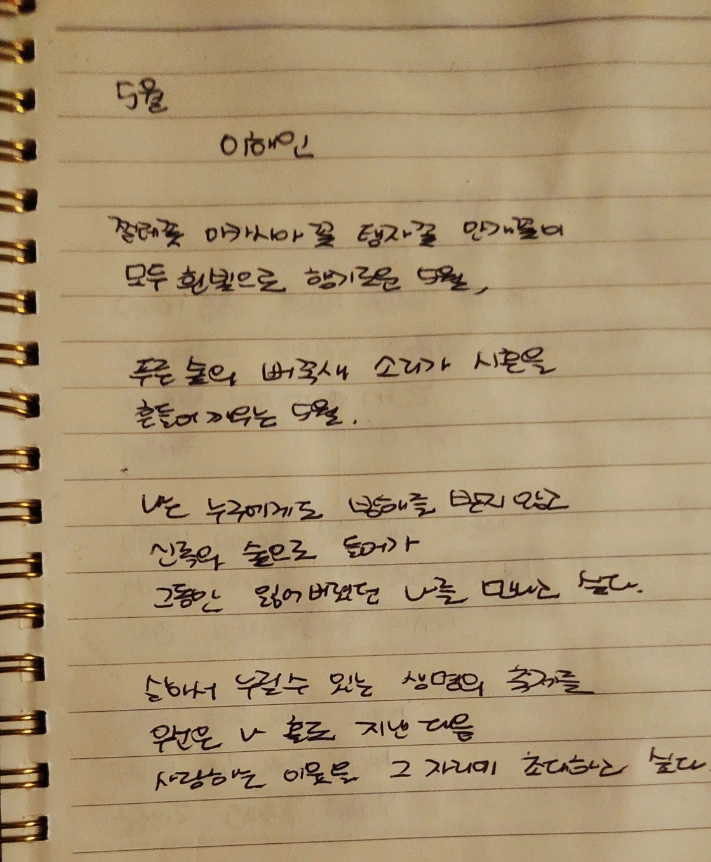 5월
이해인
찔레꽃 아카시아 꽃 탱자꽃 안개꽃이
모두 흰빛으로 향기로운 5월,
푸른 숲의 뻐꾹새 소리가 시혼을
흔들어 깨우는 5월.
나는 누구에게도 방해를 받지 않고
신록의 숲으로 들어가
그동안 잃어버렸던 나를 만나고 싶다.
살아서 누릴수 있는 생명의 축제를
우선은 나 홀로 지낸 다음
사랑하는 이웃을 그 자리에 초대하고 싶다